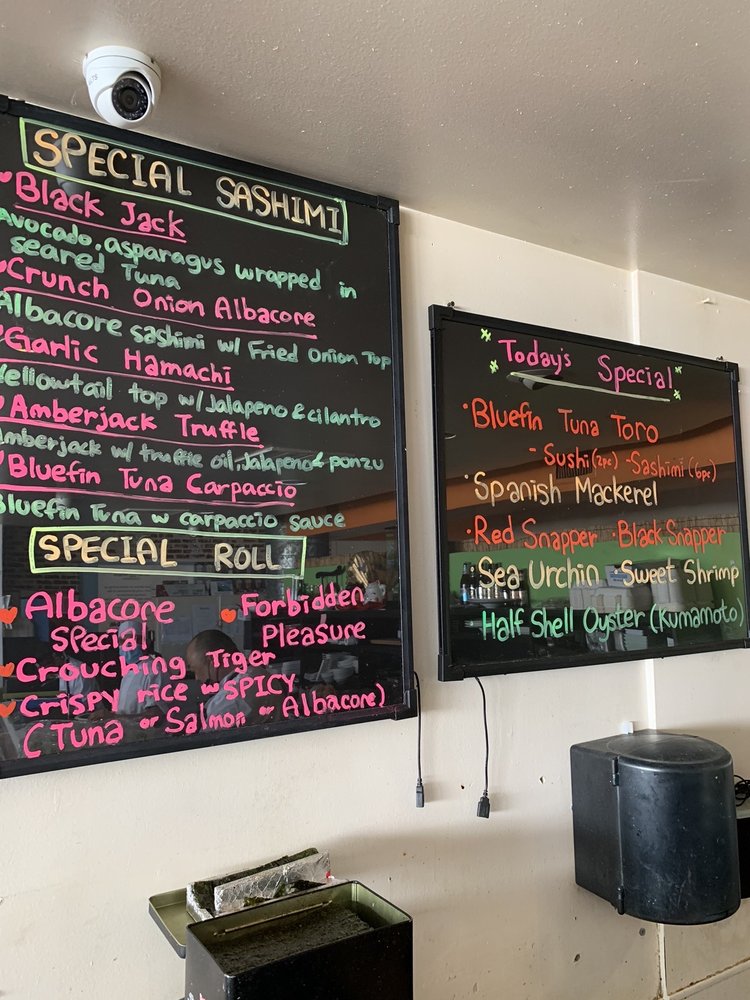 SPECIAL SASHIMI
Black Jack
Avocado, asparagus wrapped in
seared Tuna
Crunch Onion Albacore
Albacore sashimi w/ Fried Onion Top
Garlic Hamachi
Yellowtail top w/ Jalapeno & cilantro
Amberjack Truffle
Amberjack w/ truffle oil, Jalapeno & ponzu
Bluefin Tuna Carpaccio
Bluefin Tuna w carpaccio sauce
SPECIAL ROLL
Albacore
Special
Forbidden
Pleasure
Crouching Tiger
Crispy rice w SPICY
(Tuna or Salmon or Albacore)
Today's Special
·Bluefin Tuna Toro
- Sushi (2pc) - Sashimi (6pc)
·Spanish Mackerel
·Red Snapper ·Black Snapper
·Sea Urchin ·Sweet Shrimp
Half Shell Oyster (Kumamoto)